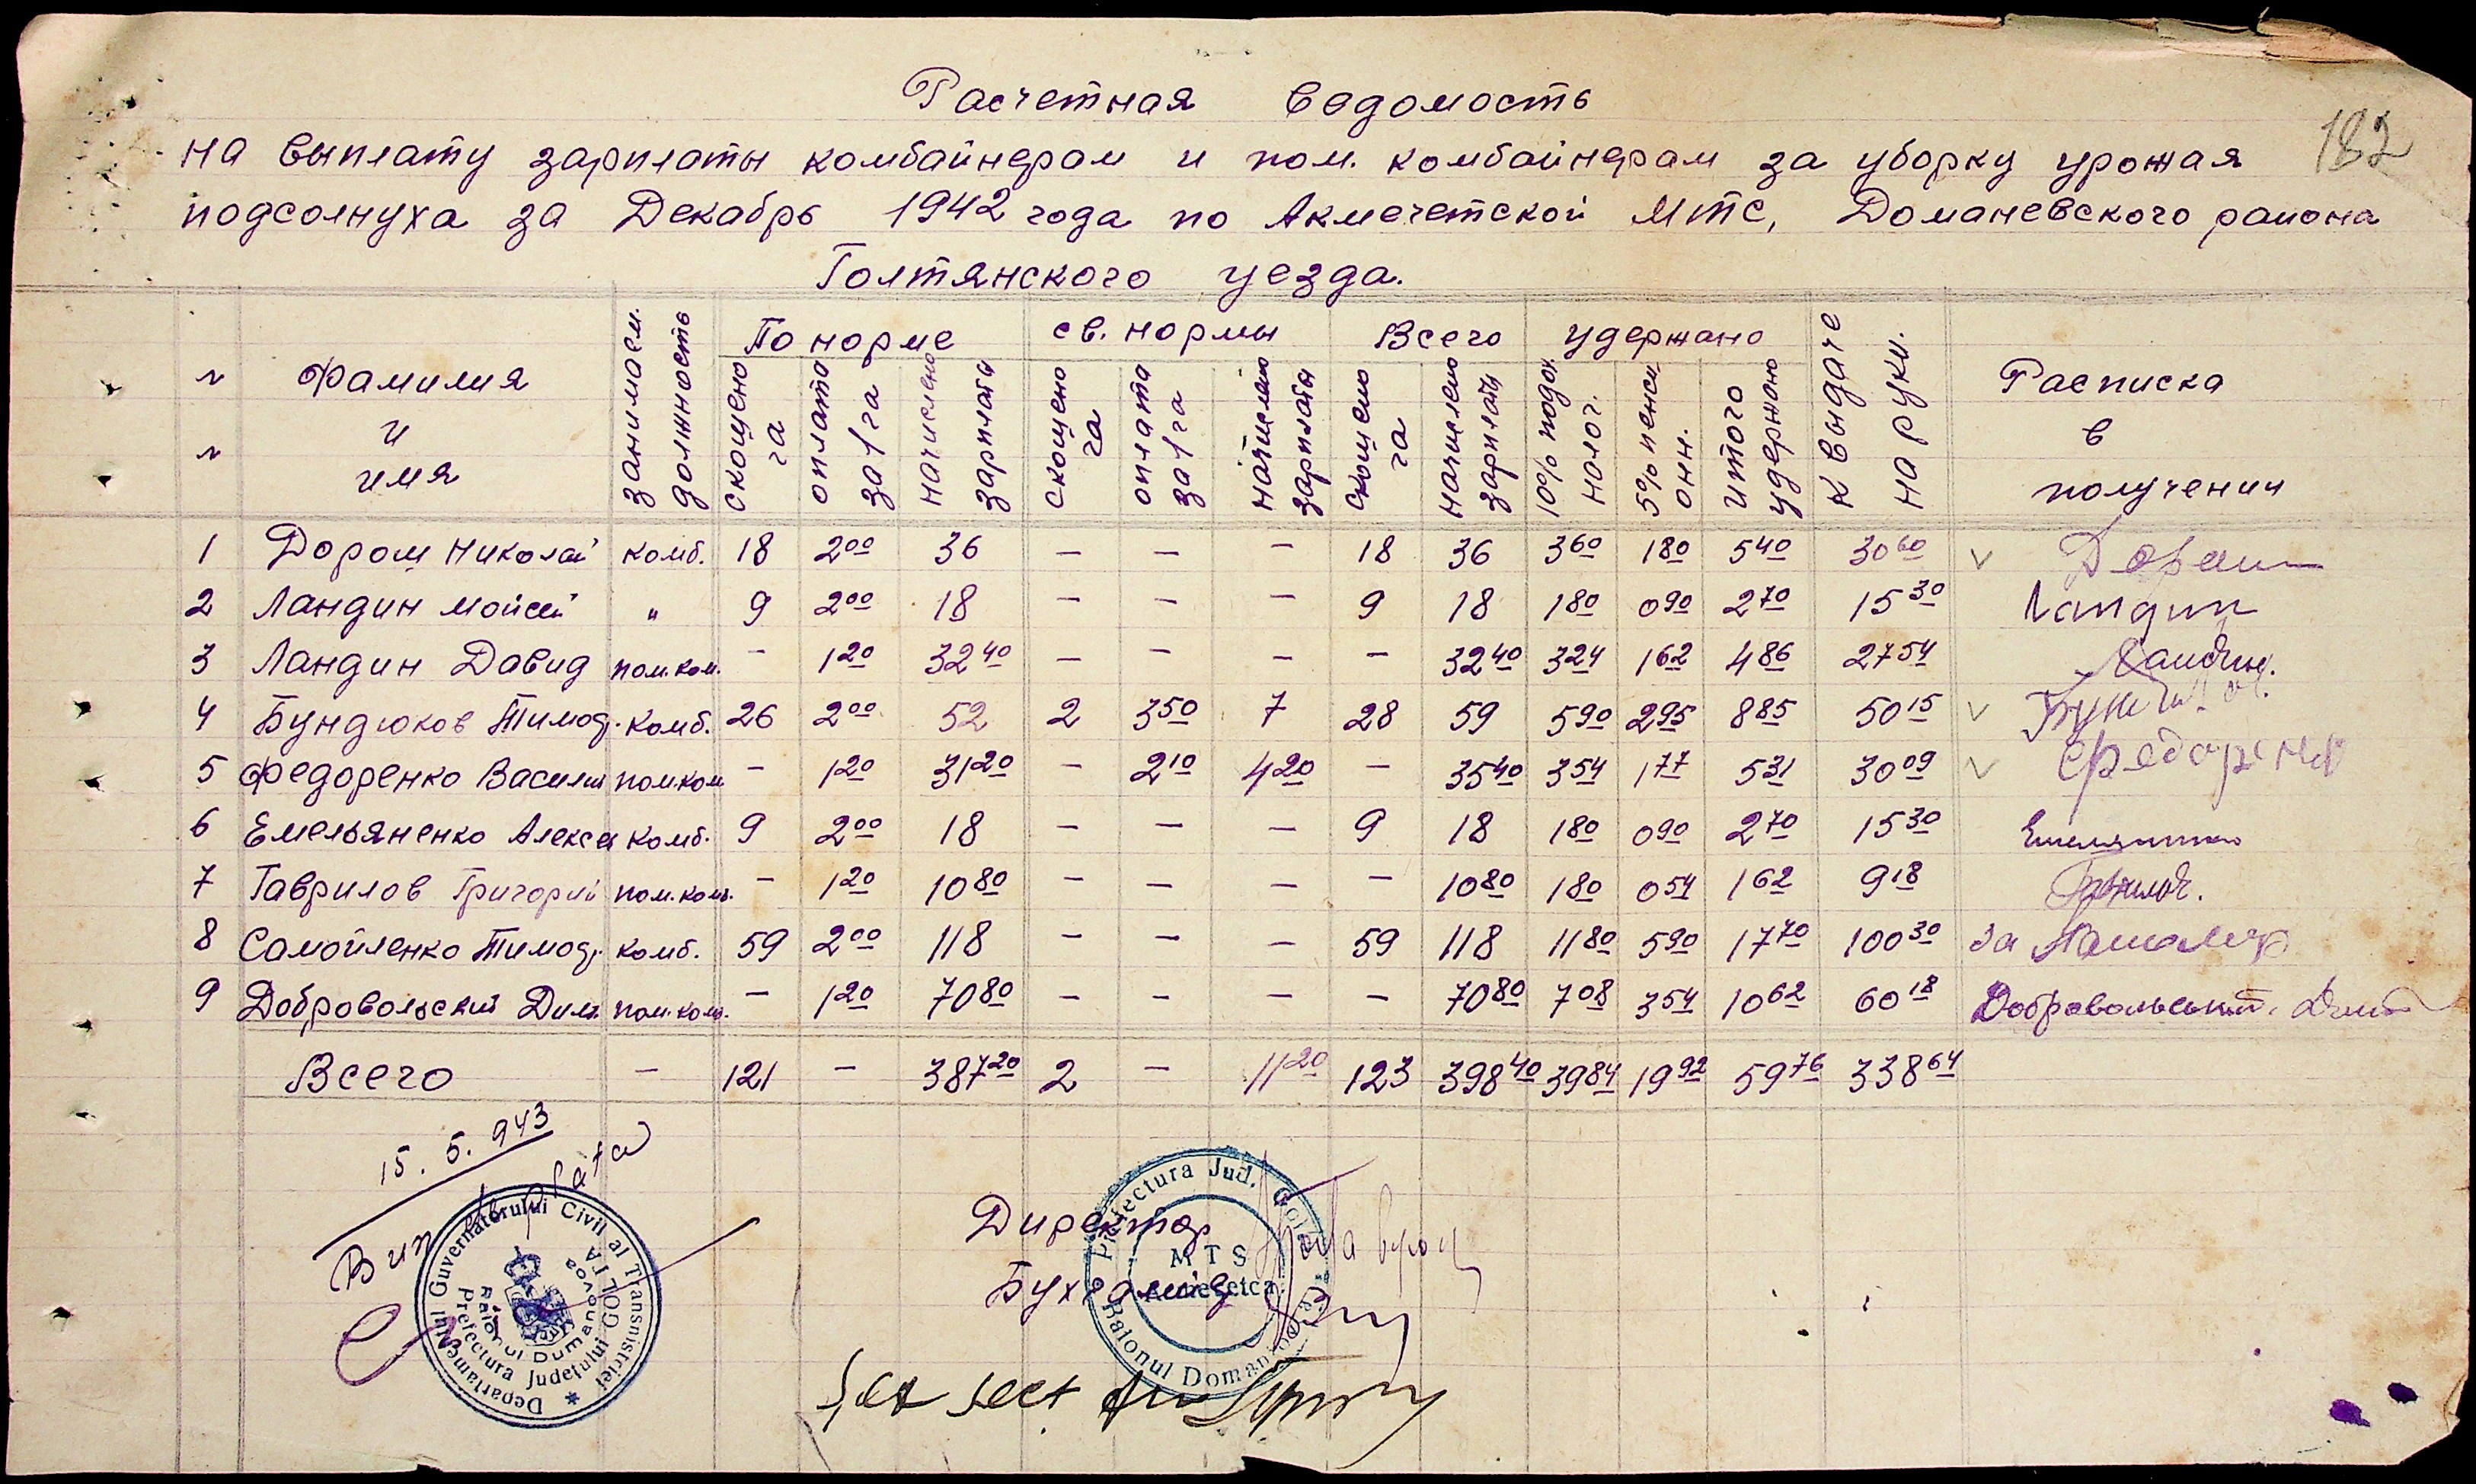 182
Расчетная ведомость
на выплату зарплаты комбайнерам и пом. комбайнерам за уборку урожая
подсолнуха за Декабрь 1942 года по Акмечетской МТС, Доманевского района
Голтянского уезда.
№ № Фамилия и имя занимаем. должность По норме св. нормы Всего удержано к выдаче на руки. Расписка в получении
скошено га оплата за 1 га начислено зарплаты скошено га оплата за 1 га начислено зарплаты скошено га начислено зарплаты 10% подох. налог. 5% пенси онн. итого удержано
1 Дорош Николай комб. 18 2 00 36 – – – 18 36 3 60 1 80 5 40 30 60 v Дорош
2 Ландин Мойсей " 9 2 00 18 – – – 9 18 1 80 0 90 2 70 15 30 Ландин
3 Ландин Давид пом.ком. – 1 20 32 40 – – – – 32 40 3 24 1 62 4 86 27 54 Ландин.
4 Бундюков Тимоф. комб. 26 2 00 52 2 3 50 7 28 59 5 90 2 95 8 85 50 15 v
5 Федоренко Василий пом.ком – 1 20 31 20 – 2 10 4 20 – 35 40 3 54 1 77 5 31 30 09 v Федоренко
6 Емельяненко Алексей комб. 9 2 00 18 – – – 9 18 1 80 0 90 2 70 15 30
7 Гаврилов Григорий пом.ком. – 1 20 10 80 – – – – 10 80 1 80 0 54 1 62 9 18
8 Самойленко Тимоф. комб. 59 2 00 118 – – – 59 118 11 80 5 90 17 70 100 30 за
9 Добровольский Дим. пом.ком. – 1 20 70 80 – – – – 70 80 7 08 3 54 10 62 60 18 Добровольський.
Всего – 121 – 387 20 2 – 11 20 123 398 40 39 84 19 92 59 76 338 64
15. 5. 943
Bun de plata
Departamentul Guvernatorului Civil al Transnistriei
Prefectura Județului GOLTA
Raionul Dumanovca
Директор
Бухгалтер
Prefectura Jud. Golta
MTS
Acmecetca
Raionul Domaniovca